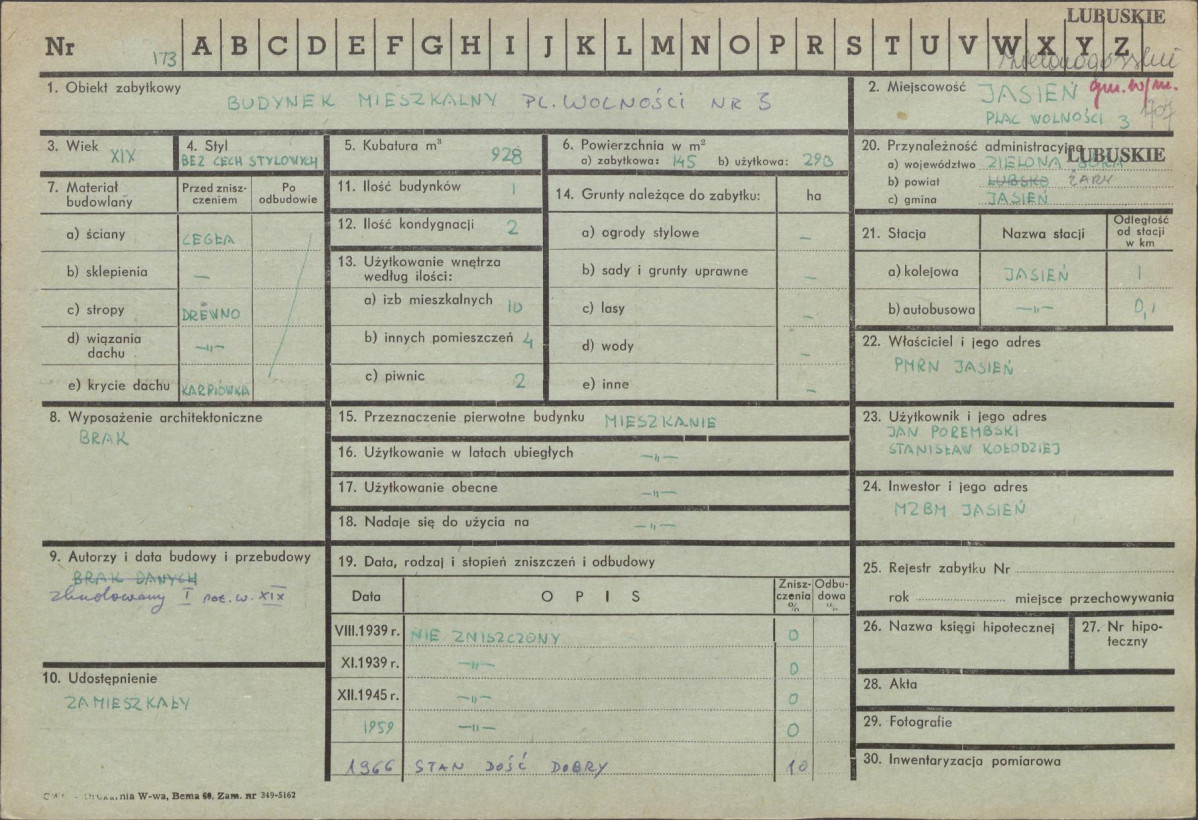 LUBUSKIE
Nr 173 A B C D E F G H I J K L M N O P R S T U V W X Y Z
1. Obiekt zabytkowy
BUDYNEK MIESZKALNY PL. WOLNOŚCI NR 3
2. Miejscowość JASIEŃ gm. w/m.
PLAC WOLNOŚCI 3
3. Wiek XIX
4. Styl
BEZ CECH STYLOWYCH
5. Kubatura m³ 928
6. Powierzchnia w m²
a) zabytkowa: 145 b) użytkowa: 293
7. Materiał budowlany
Przed zniszczeniem
Po odbudowie
a) ściany CEGŁA
b) sklepienia —
c) stropy DREWNO
d) wiązania dachu —"—
e) krycie dachu KARPIÓWKA
8. Wyposażenie architektoniczne
BRAK
9. Autorzy i data budowy i przebudowy
BRAK DANYCH
zbudowany I poł. w. XIX
10. Udostępnienie
ZAMIESZKAŁY
11. Ilość budynków 1
12. Ilość kondygnacji 2
13. Użytkowanie wnętrza
według ilości:
a) izb mieszkalnych 10
b) innych pomieszczeń 4
c) piwnic 2
14. Grunty należące do zabytku: ha
a) ogrody stylowe —
b) sady i grunty uprawne —
c) lasy —
d) wody —
e) inne —
15. Przeznaczenie pierwotne budynku MIESZKANIE
16. Użytkowanie w latach ubiegłych —"—
17. Użytkowanie obecne —"—
18. Nadaje się do użycia na —"—
19. Data, rodzaj i stopień zniszczeń i odbudowy
Data OPIS Zniszczenia % Odbudowa %
VIII.1939 r. NIE ZNISZCZONY 0
XI.1939 r. —"— 0
XII.1945 r. —"— 0
1959 —"— 0
1966 STAN DOŚĆ DOBRY 10
20. Przynależność administracyjna
LUBUSKIE
a) województwo ZIELONA GÓRA
b) powiat LUBSKO ŻARY
c) gmina JASIEŃ
21. Stacja Nazwa stacji Odległość od stacji w km
a) kolejowa JASIEŃ 1
b) autobusowa —"— 0,1
22. Właściciel i jego adres
PMRN JASIEŃ
23. Użytkownik i jego adres
JAN POREMBSKI
STANISŁAW KOŁODZIEJ
24. Inwestor i jego adres
MZBM JASIEŃ
25. Rejestr zabytku Nr
rok miejsce przechowywania
26. Nazwa księgi hipotecznej
27. Nr hipoteczny
28. Akta
29. Fotografie
30. Inwentaryzacja pomiarowa
W-wa, Bema 60. Zam. nr 349-5162